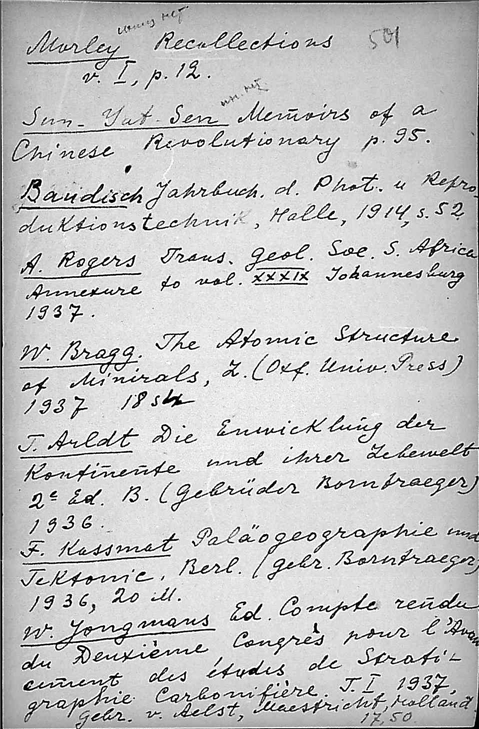 501
Morley Recollections
v. I, p. 12.
Sun-Yat-Sen Memoirs of a
Chinese Revolutionary p. 95.
Baudisch Jahrbuch. d. Phot. u Repro-
duktionstechnik, Halle, 1914, s. 52
A. Rogers Trans. Geol. Soc. S. Africa
Annexure to vol. XXXIX Johannesburg
1937.
W. Bragg. The Atomic Structure
of Minirals, L. (Oxf. Univ. Press)
1937 18 sh
T. Arldt Die Enwicklung der
Kontinente und ihrer Lebewelt
2e Ed. B. (Gebrüder Borntraeger)
1936.
F. Kossmat Paläogeographie und
Tektonic. Berl. (Gebr. Borntraeger)
1936, 20 M.
W. Jongmans Ed. Compte rendu
du Deuxième Congrès pour l'Avan
cement des études de Strati-
graphie Carbonifière. T. I 1937,
Gebr. v. Aelst, Maestricht, Holland
17,50